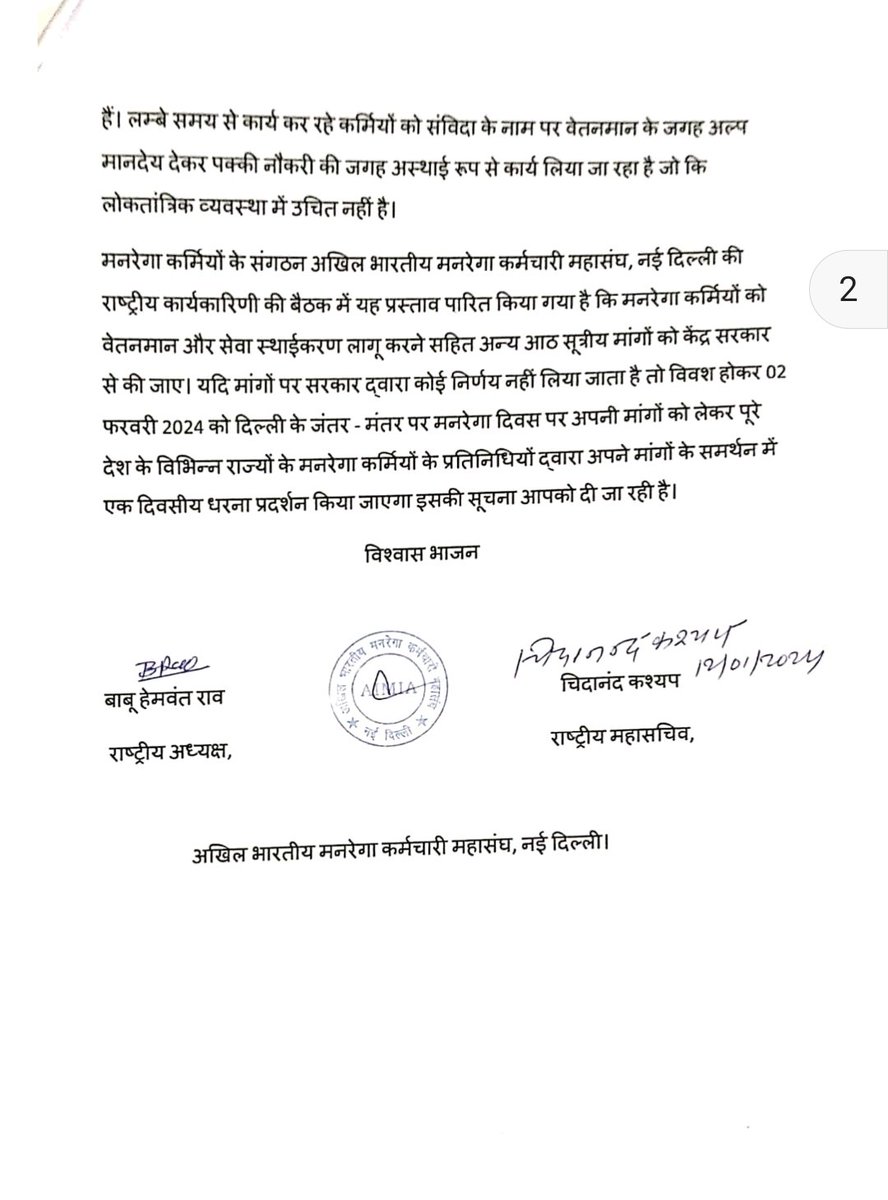 हैं। लम्बे समय से कार्य कर रहे कर्मियों को संविदा के नाम पर वेतनमान के जगह अल्प
मानदेय देकर पक्की नौकरी की जगह अस्थाई रूप से कार्य लिया जा रहा है जो कि
लोकतांत्रिक व्यवस्था में उचित नहीं है।
मनरेगा कर्मियों के संगठन अखिल भारतीय मनरेगा कर्मचारी महासंघ, नई दिल्ली की
राष्ट्रीय कार्यकारिणी की बैठक में यह प्रस्ताव पारित किया गया है कि मनरेगा कर्मियों को
2
वेतनमान और सेवा स्थाईकरण लागू करने सहित अन्य आठ सूत्रीय मांगों को केंद्र सरकार
से की जाए। यदि मांगों पर सरकार द्वारा कोई निर्णय नहीं लिया जाता है तो विवश होकर 02
फरवरी 2024 को दिल्ली के जंतर - मंतर पर मनरेगा दिवस पर अपनी मांगों को लेकर पूरे
देश के विभिन्न राज्यों के मनरेगा कर्मियों के प्रतिनिधियों द्वारा अपने मांगों के समर्थन में
एक दिवसीय धरना प्रदर्शन किया जाएगा इसकी सूचना आपको दी जा रही है।
विश्वास भाजन
चिदानन्द कश्यप
12/01/2024
बाबू हेमवंत राव
चिदानंद कश्यप
राष्ट्रीय अध्यक्ष,
राष्ट्रीय महासचिव,
अखिल भारतीय मनरेगा कर्मचारी महासंघ
AIMIA
नई दिल्ली
अखिल भारतीय मनरेगा कर्मचारी महासंघ, नई दिल्ली।